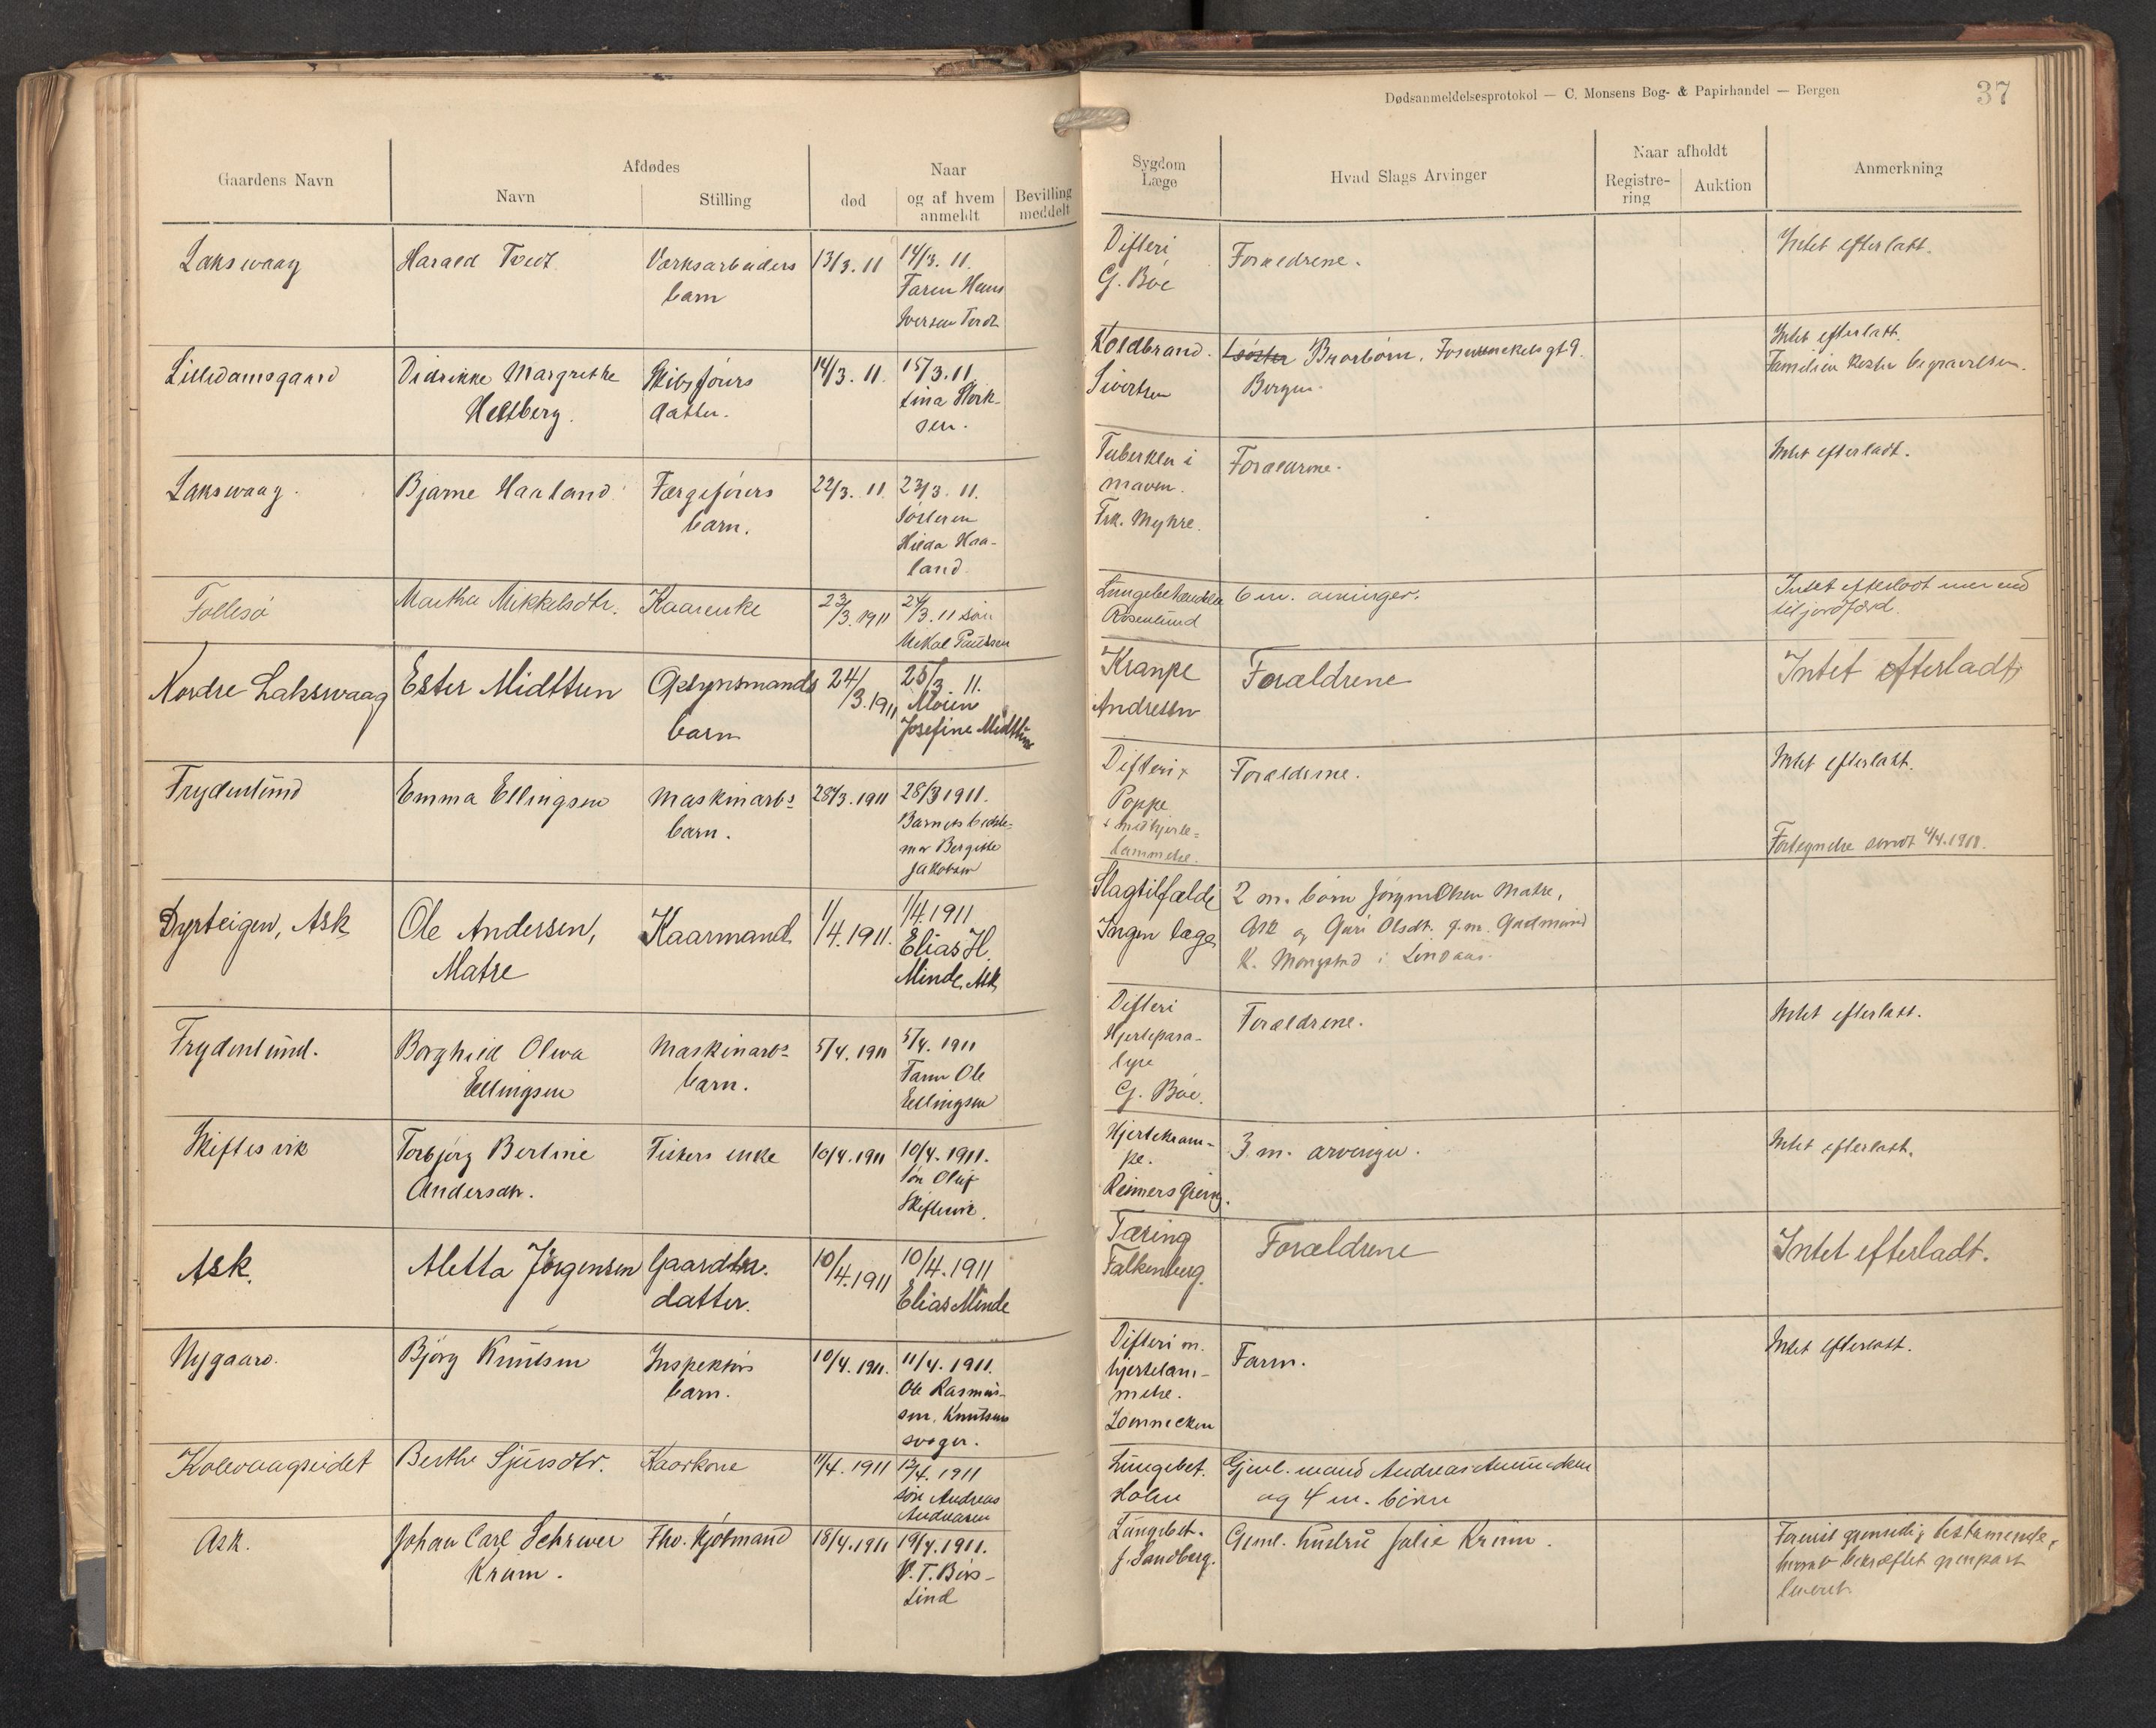 Dødsanmeldelsesprotokol — C. Monsens Bog- & Papirhandel — Bergen
37
Gaardens Navn
Afdødes
Navn
Stilling
død
Naar
og af hvem
anmeldt
Bevilling
meddelt
Sygdom
Læge
Hvad Slags Arvinger
Naar afholdt
Registre-
ring
Auktion
Anmerkning
Lakswaag
Harald Tvedt
Værksarbeiders
barn
13/3. 11
14/3. 11.
Faren Hans
Iversen Tvedt
Difteri
G. Böe
Forældrene.
Intet efterladt.
Lilledamsgaard
Didrikke Margrethe
Heltberg.
Skibsförers
datter.
14/3. 11.
15/3. 11.
Lina Störk-
sen.
Koldbrand.
Sivertsen
1 söster Brorbörn,
Bergen.
Intet efterladt.
Familien koster begravelsen.
Lakswaag.
Bjarne Haaland
Færgeförers
barn.
22/3. 11.
23/3. 11.
Sösteren
Hilda Haa-
land
Tuberkler i
maven.
Frk. Myhre.
Forældrene.
Intet efterladt.
Follesö
Martha Mikkelsdtr.
Kaarenke
23/3.1911
24/3. 11 sön
Mikal Paulsen
Lungebetændelse
Rosenlund
6 m. arvinger.
Intet efterladt mer end
til jordfærd.
Nordre Lakswaag
Ester Midttun
Opsynsmands
barn
24/3.1911
25/3. 11.
Moren
Josefine Midttun
Krampe
Andresen
Forældrene
Intet efterladt
Frydenlund
Emma Ellingsen
Maskinarbs
barn.
28/3. 1911
28/3 1911.
Barnets bedste-
mor Bergitte
Jakobsen
Difteri
Poppe
med hjerte-
lammelse.
Forældrene.
Intet efterladt.
Dyrteigen, Ask
Ole Andersen,
Matre
Kaarmand
1/4.1911.
1/4.1911.
Elias H.
Minde, Ask
Slagtilfælde
Ingen læge
2 m. börn Jörgen Olsen Matre,
Ask og Guri Olsdt. g.m. Gudmund
K. Mongstad i Lindaas.
Forkyndelse sendt 4/4.1911.
Frydenlund.
Borghild Olwa
Ellingsen
Maskinarbs
barn.
5/4. 1911
5/4. 1911
Faren Ole
Ellingsen
Difteri
Hjertepara-
lyse
G. Böe.
Forældrene.
Intet efterladt.
Skiftesvik
Torbjörg Bertine
Andersdtr.
Fiskers enke
10/4.1911
10/4. 1911.
Sön Oluf
Skiftesvik.
Hjertekram-
pe.
Reimers
3 m. arvinger.
Intet efterladt.
Ask.
Aletta Jörgensen
Gaardbr.
datter.
10/4.1911
10/4.1911
Elias Minde
Tæring
Falkenberg.
Forældrene
Intet efterladt.
Nygaard.
Björg Knutsen
Inspektörs
barn.
10/4. 1911.
11/4. 1911.
Ole Rasmus-
sen, Knutsens
svoger.
Difteri m.
hjertelam-
melse.
Lonnecken
Faren.
Intet efterladt.
Kolevaagseidet
Berthe Sjursdtr.
Kaarkone
11/4. 1911
12/4. 1911
sön Andreas
Lungebet.
Holm
Gjenl. mand Andreas
og 4 m. börn
Ask.
Johan Carl Schriwer
Krum.
Fhv. Kjöbmand
18/4.1911
19/4.1911.
Lungebet.
J. Sandberg.
Gjenl. hustru Julie Krum.
bekræftet gjenpart
leveret.